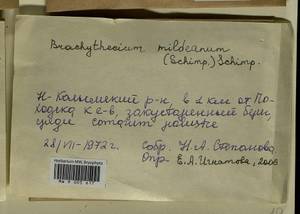 Brachythecium mildeanum
(Schimp.) Schimp.
Н-Колымский р-н, в 2 км от По-
ходска к с-в, закустаренный бери,
28/VII-1972г. Собр. Н.А. Степанова
Опр. Е.А. Игнатова, 2006
Herbarium MW, Bryophyta